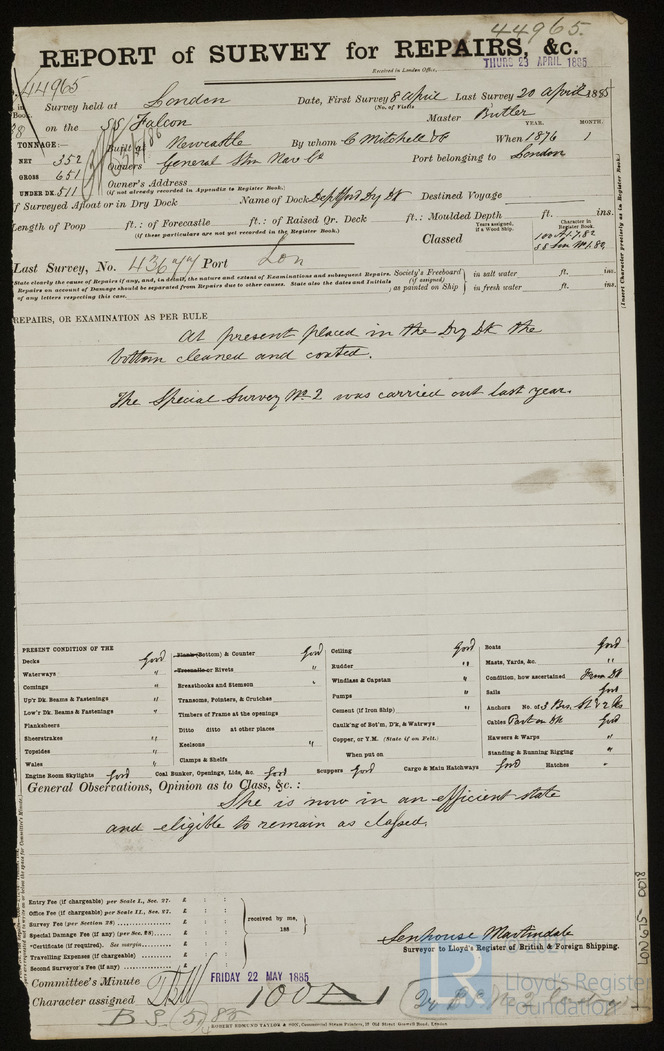 44965.
REPORT of SURVEY for REPAIRS, &c.
Received in London Office, THURS 23 APRIL 1885
44965
Survey held at London Date, First Survey 8 April Last Survey 20 April 1885
(No. of Visits
on the SS Falcon Master Butler
YEAR. MONTH.
TONNAGE:— Built at Newcastle By whom C Mitchell & Co When 1876 1
NET 352 Owners General Stm Nav Co Port belonging to London
GROSS 651
UNDER DK. 511 Owner's Address
(if not already recorded in Appendix to Register Book.)
If Surveyed Afloat or in Dry Dock Name of Dock Deptford Dry Dk Destined Voyage
Length of Poop ft.: of Forecastle ft.: of Raised Qr. Deck ft.: Moulded Depth ft. ins.
(if these particulars are not yet recorded in the Register Book.)
Years assigned, if a Wood Ship.
Character in Register Book.
Classed 100 A1.7.82
Last Survey, No. 43677 Port Lon
State clearly the cause of Repairs if any, and, in detail, the nature and extent of Examinations and subsequent Repairs.
Repairs on account of Damage should be separated from Repairs due to other causes. State also the dates and Initials
of any letters respecting this case.
Society's Freeboard (if assigned) as painted on Ship
in salt water ft. ins.
in fresh water ft. ins.
(Insert Character precisely as in Register Book.)
REPAIRS, OR EXAMINATION AS PER RULE
At present placed in the Dry Dk the
bottom cleaned and coated.
The Special Survey No. 2 was carried out last year.
PRESENT CONDITION OF THE
Decks Good
Waterways "
Comings "
Up'r Dk. Beams & Fastenings "
Low'r Dk. Beams & Fastenings "
Planksheers
Sheerstrakes "
Topsides "
Wales "
Engine Room Skylights Good
Plank (Bottom) & Counter Good
Treenails or Rivets "
Breasthooks and Stemson "
Transoms, Pointers, & Crutches
Timbers of Frame at the openings
Ditto ditto at other places
Keelsons "
Clamps & Shelfs
Coal Bunker, Openings, Lids, &c. Good
Ceiling Good
Rudder "
Windlass & Capstan "
Pumps "
Cement (if Iron Ship) "
Caulk'ng of Bot'm, D'k, & Watrwys
Copper, or Y.M. (State if on Felt.)
When put on
Scuppers Good Cargo & Main Hatchways Good
Boats Good
Masts, Yards, &c. "
Condition, how ascertained From Dk
Sails Good
Anchors No. of 3 Brs. St & 2 Ks
Cables Part on Dk Good
Hawsers & Warps "
Standing & Running Rigging "
Hatches "
General Observations, Opinion as to Class, &c.:
She is now in an efficient state
and eligible to remain as classed.
Entry Fee (if chargeable) per Scale I., Sec. 27. £ : :
Office Fee (if chargeable) per Scale II., Sec. 27. £ : :
Survey Fee (per Section 28) £ : :
Special Damage Fee (if any) (per Sec. 28) £ : :
*Certificate (if required). See margin £ : :
Travelling Expenses (if chargeable) £ : :
Second Surveyor's Fee (if any) £ : :
received by me,
188
Senhouse Martindale
Surveyor to Lloyd's Register of British & Foreign Shipping.
Committee's Minute FRIDAY 22 MAY 1885
Character assigned 100 A 1
B.S. 5,85
ROBERT EDMUND TAYLOR & SON, Commercial Steam Printers, 19 Old Street, Goswell Road, London
LON675-0018
© 2021
LR
Lloyd's Register
Foundation